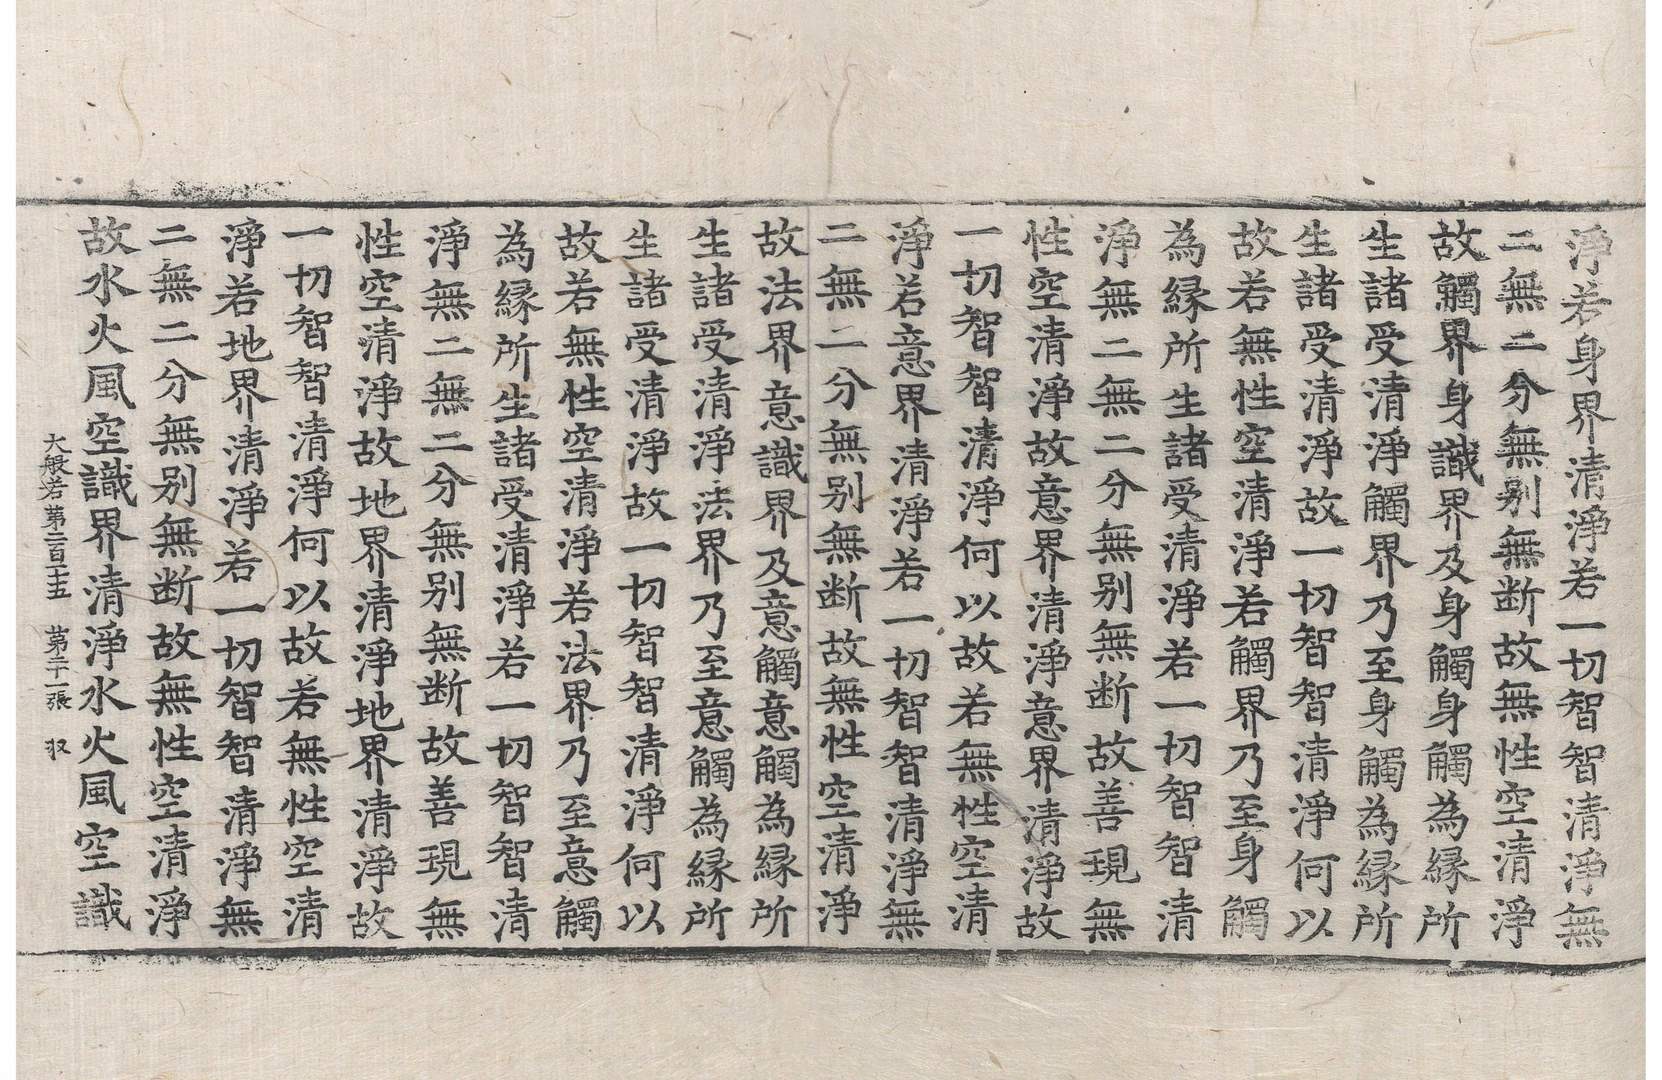 淨若身界清淨若一切智智清淨無
二無二分無别無断故無性空清淨
故觸界身識界及身觸身觸為縁所
生諸受清淨觸界乃至身觸為縁所
生諸受清淨故一切智智清淨何以
故若無性空清淨若觸界乃至身觸
為縁所生諸受清淨若一切智智清
淨無二無二分無别無断故善現無
性空清淨故意界清淨意界清淨故
一切智智清淨何以故若無性空清
淨若意界清淨若一切智智清淨無
二無二分無别無断故無性空清淨
故法界意識界及意觸意觸為縁所
生諸受清淨法界乃至意觸為縁所
生諸受清淨故一切智智清淨何以
故若無性空清淨若法界乃至意觸
為縁所生諸受清淨若一切智智清
淨無二無二分無别無断故善現無
性空清淨故地界清淨地界清淨故
一切智智清淨何以故若無性空清
淨若地界清淨若一切智智清淨無
二無二分無别無断故無性空清淨
故水火風空識界清淨水火風空識
大般若第二百十五 第二十一張 収